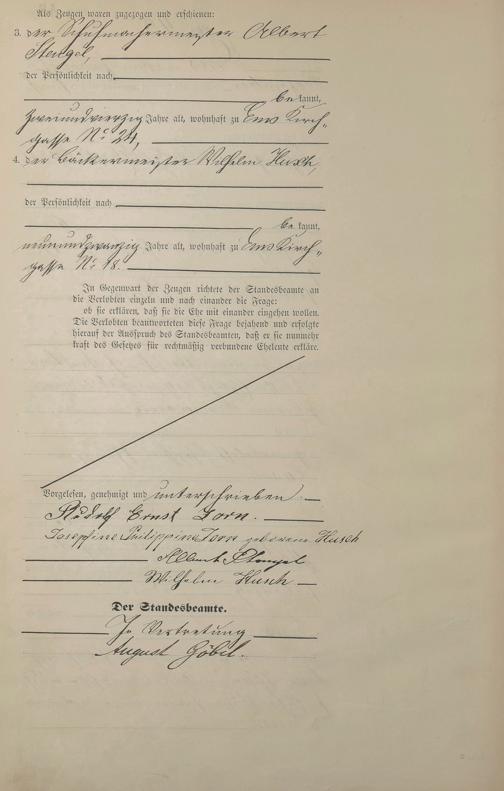 Als Zeugen waren zugezogen und erschienen:
3. der Schuhmachermeister Albert
Stengel,
der Persönlichkeit nach
be kannt,
zweiundvierzig Jahre alt, wohnhaft zu Ems Kirch-
gasse No 24,
4. der Bäckermeister Wilhelm Husch,
der Persönlichkeit nach
be kannt,
neunundzwanzig Jahre alt, wohnhaft zu Ems Kirch-
gasse No 18.
In Gegenwart der Zeugen richtete der Standesbeamte an
die Verlobten einzeln und nach einander die Frage:
ob sie erklären, daß sie die Ehe mit einander eingehen wollen.
Die Verlobten beantworteten diese Frage bejahend und erfolgte
hierauf der Ausspruch des Standesbeamten, daß er sie nunmehr
kraft des Gesetzes für rechtmäßig verbundene Eheleute erkläre.
Vorgelesen, genehmigt und unterschrieben
Rudolf Ernst Zorn.
Josephine Philippine Zorn geborene Husch
Albert Stengel
Wilhelm Husch
Der Standesbeamte.
In Vertretung
August Göbel.